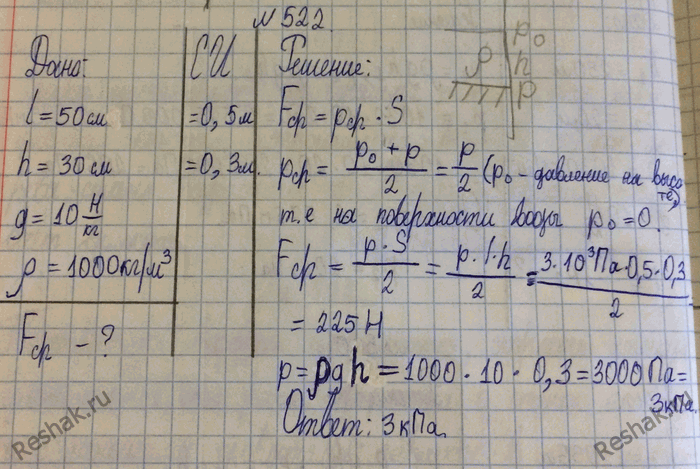 №522.
Дано:
l = 50 см
h = 30 см
g = 10 Н/кг
ρ = 1000 кг/м³
Fср - ?
СИ
= 0,5 м
= 0,3 м.
Решение:
Fср = pср · S
pср = (p₀ + p)/2 = p/2 (p₀ - давление на высоте)
т.е на поверхности воды p₀ = 0.
Fср = (p · S)/2 = (p · l · h)/2 = (3 · 10³ Па · 0,5 · 0,3)/2
= 225 Н
p = ρgh = 1000 · 10 · 0,3 = 3000 Па =
3 кПа
Ответ: 3 кПа.
p₀
ρ
h
p
Reshak.ru
Reshak.ru